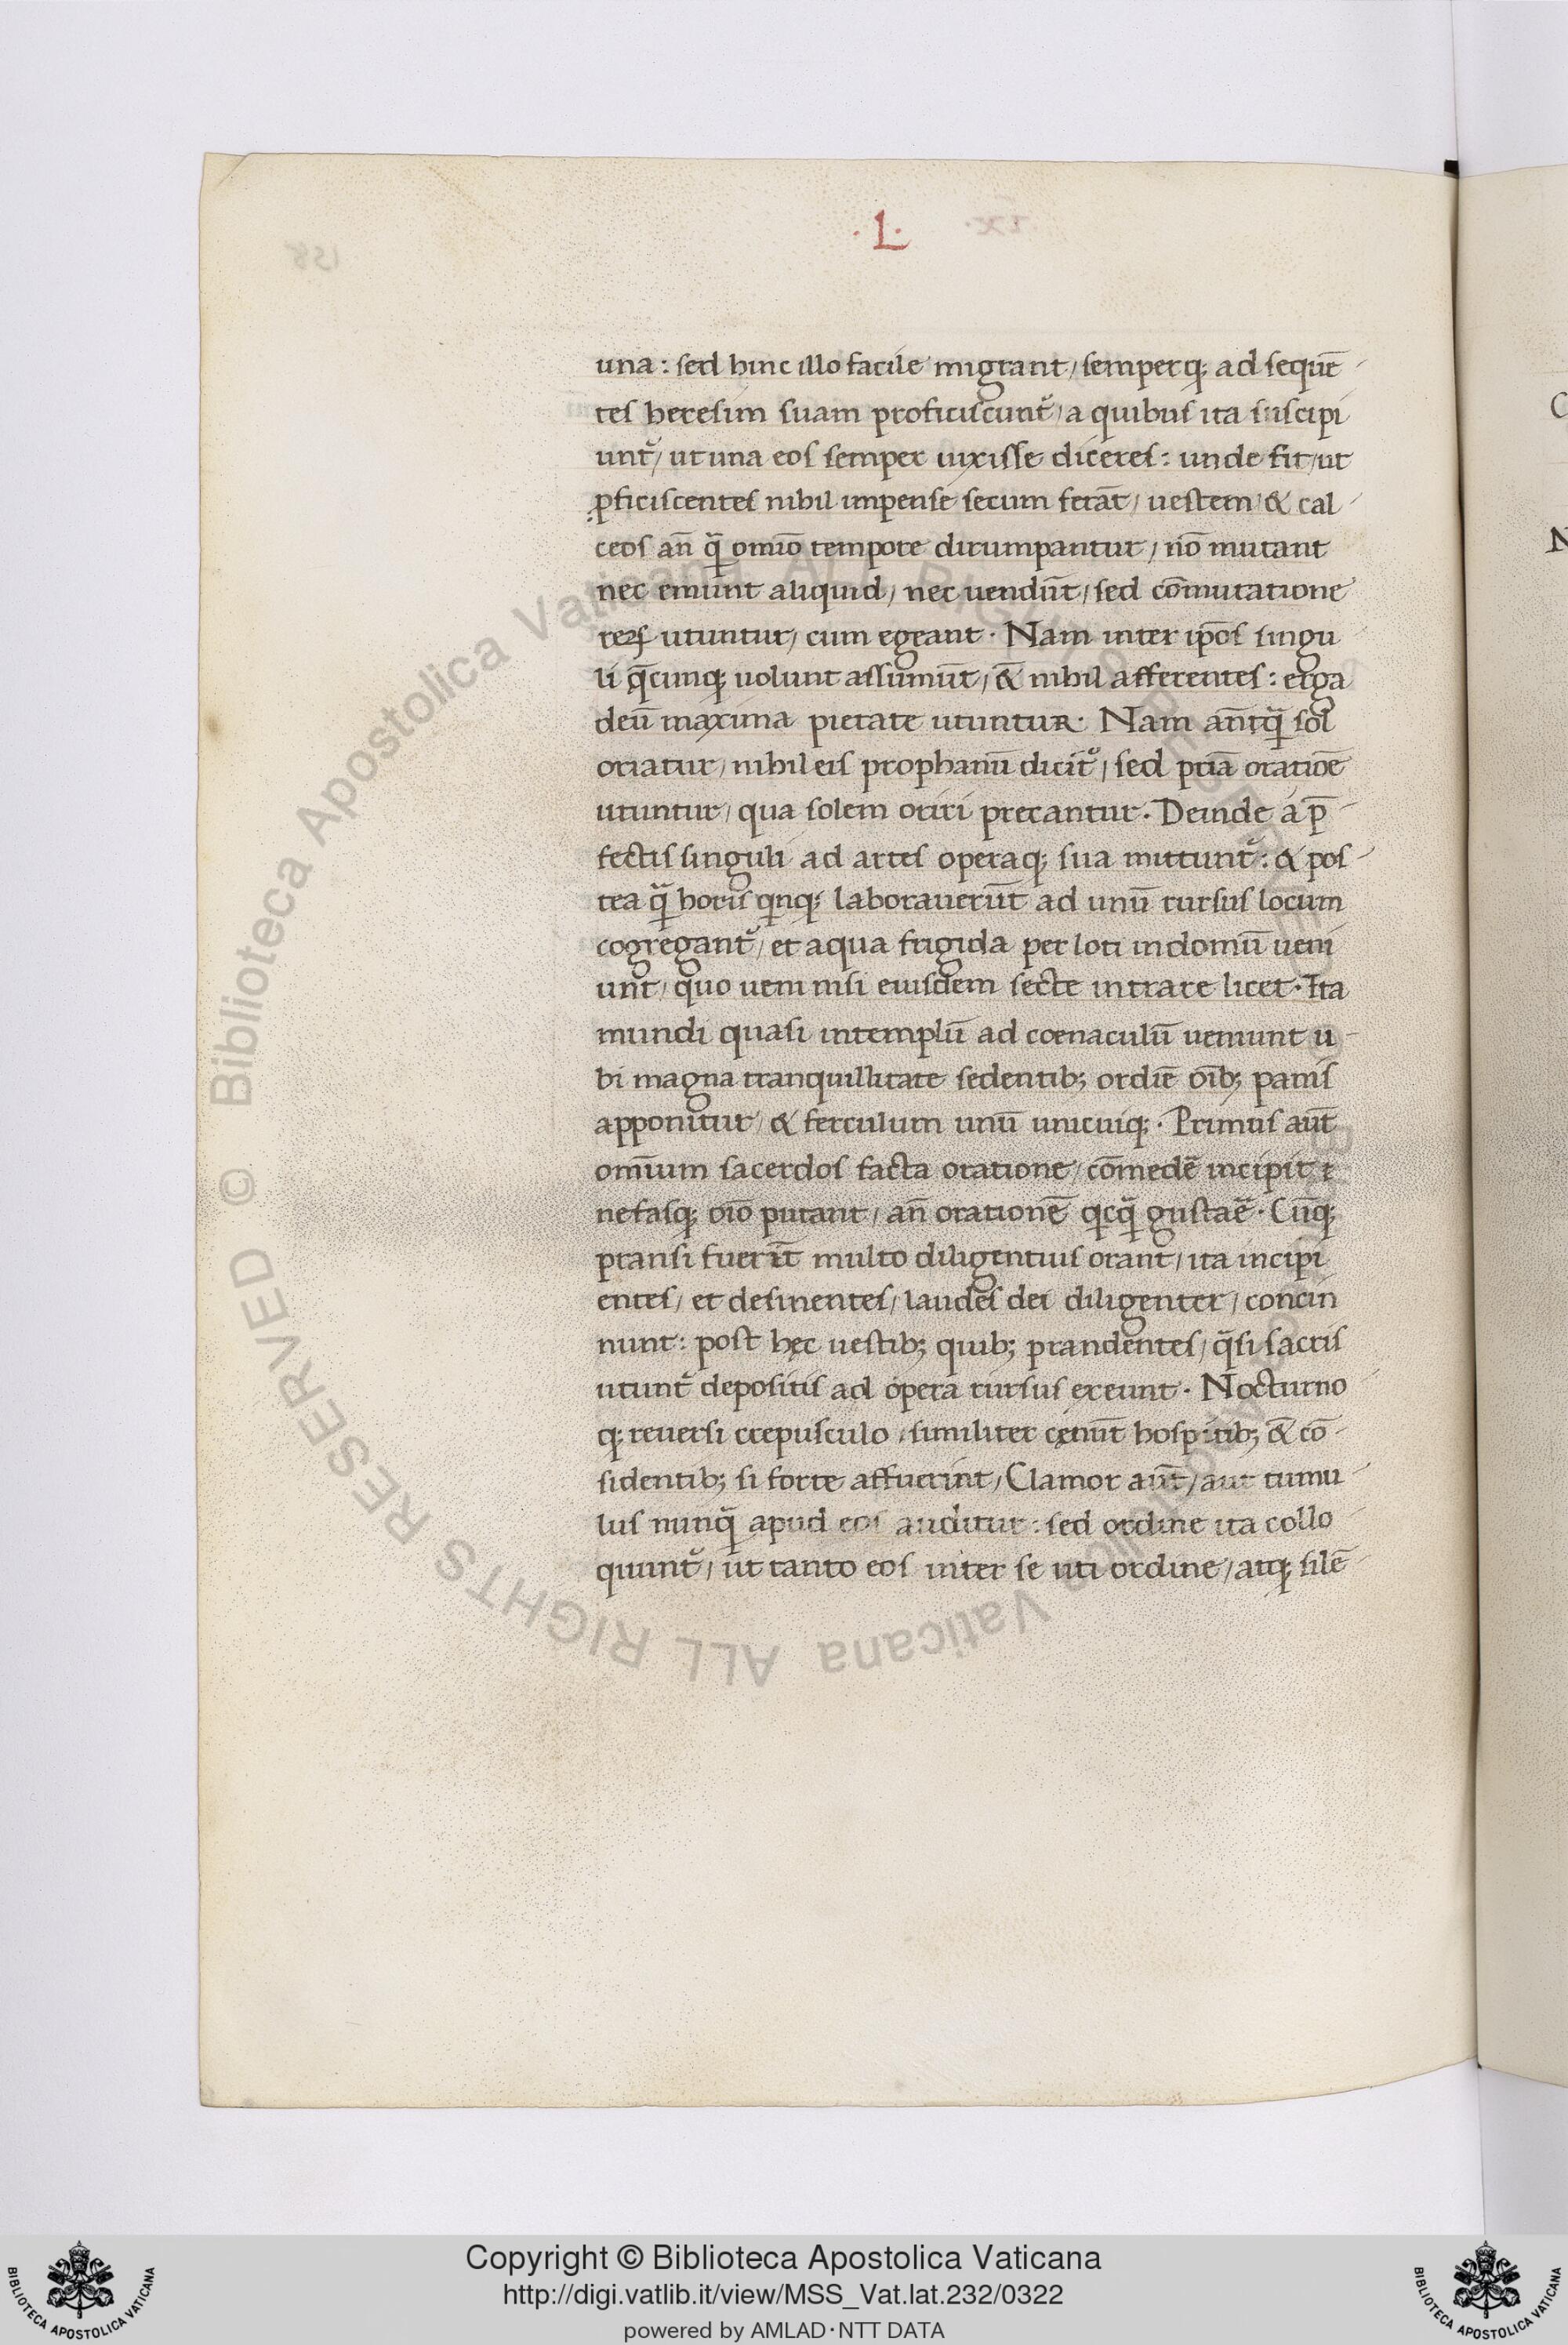 ·L·
una: sed hinc illo facile migrant/ semperq; ad sequē-
tes heresim suam proficiscunt᷑/ a quibus ita suscipi
unt᷑/ ut una eos semper uixisse diceres: unde fit/ ut
ꝓficiscentes nihil impense secum ferāt/ uestem & cal-
ceos an̄ q̄ omīo tempore dirumpantur/ nō mutant
nec emunt aliquid/ nec uendūt/ sed cōmutatione
reꝝ utuntur/ cum egeant· Nam inter ip̄os singu-
li q̄cunq; uolunt assumūt/ &̄ nihil afferentes: erga
deū maxima pietate utuntur· Nam an̄tq̄ sol
oriatur/ nihil eis prophanū dicit᷑/ sed p̄riā oratiōe
utuntur/ qua solem oriri precantur· Deinde a p̄-
fectis singuli ad artes operaq; sua mittunt᷑: & pos-
tea q̄ horis qinq; laborauerūt ad unū rursus locum
cogregant᷑/ et aqua frigida per loti in domū ueni
unt/ quo uem nisi eiusdem secte intrare licet· Ita
mundi quasi in templū ad coenaculū ueniunt u-
bi magna tranquillitate sedentib; ordiē oīb; panis
apponitur/ & ferculum unū unicuiq;· Primus aūt
omīum sacerdos facta oratione/ cōmedē incipit
nefasq; oīo putant/ an̄ orationē qicq̄ gustaē· Cūq;
pransi fuerīt multo diligentius orant/ ita incipi
entes/ et desinentes/ laudes dei diligenter/ concin
nunt: post hęc uestib; quib; prandentes/ q̄si sacris
utunt᷑ depositis ad opera rursus exeunt· Nocturno-
q; reuersi crepusculo/ similiter cęnūt hospitib; &̄ cō-
sidentib; si forte affuerint/ Clamor aūt/ aut tumu-
lus nunq̄ apud eos auditur: sed ordine ita collo-
quunt᷑/ ut tanto eos inter se uti ordine/ atq; silē-
Copyright © Biblioteca Apostolica Vaticana
http://digi.vatlib.it/view/MSS_Vat.lat.232/0322
powered by AMLAD·NTT DATA
BIBLIOTECA APOSTOLICA VATICANA
BIBLIOTECA APOSTOLICA VATICANA
© Biblioteca Apostolica Vaticana ALL RIGHTS RESERVED
© Biblioteca Apostolica Vaticana ALL RIGHTS RESERVED